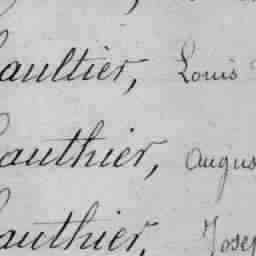 Gaultier, Louis
Gauthier, Augus
Gauthier, Josep